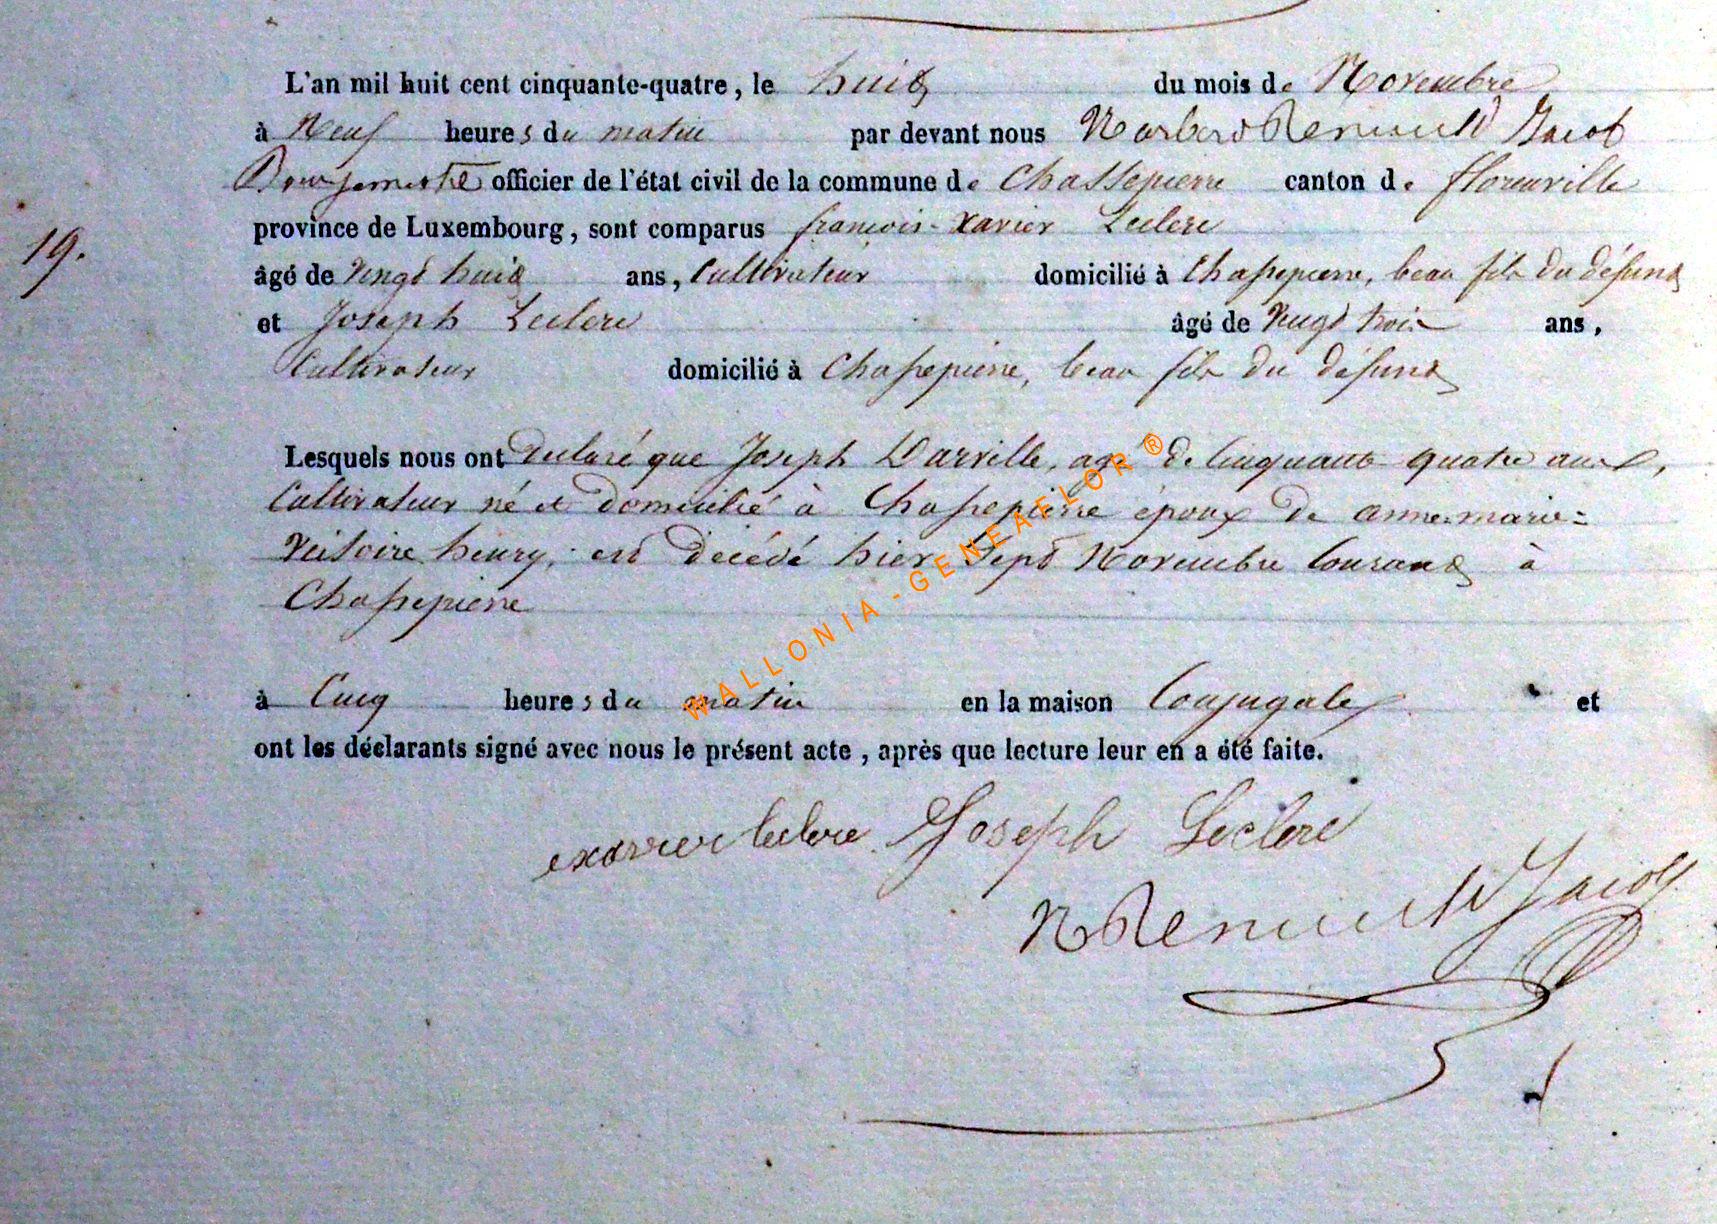 L'an mil huit cent cinquante-quatre, le huit du mois de Novembre
à Neuf heures du matin par devant nous Norbert Renauld Jacob
Bourgemestre officier de l'état civil de la commune de Chassepierre canton de florenville
province de Luxembourg, sont comparus françois-xavier Leclere
19.
âgé de vingt huit ans, Cultivateur domicilié à Chassepierre, beau fils du défunt
et Joseph Leclere âgé de vingt trois ans,
Cultivateur domicilié à Chassepierre, beau fils du défunt
Lesquels nous ont declaré que Joseph Darville, agé de Cinquante quatre ans,
Cultivateur né et domicilié à Chassepierre époux de anne-marie=
Victoire henry, est décédé hier Sept Novembre Courant à
Chassepierre
à Cinq heures du matin en la maison Conjugale et
ont les déclarants signé avec nous le présent acte, après que lecture leur en a été faite.
exavier leclere Joseph Leclere
N Renauld Jacob
WALLONIA-GENEAFLOR®